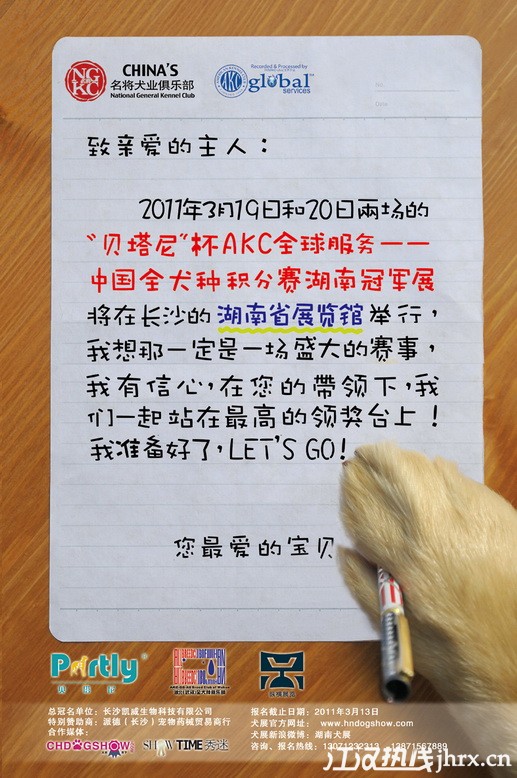 NG
KC
CHINA'S
名将犬业俱乐部
National General Kennel Club
Recorded & Processed by
AKC global
services
致亲爱的主人：
2011年3月19日和20日兩场的
“贝塔尼”杯AKC全球服务——
中国全犬种积分赛湖南冠军展
将在长沙的湖南省展览馆举行，
我想那一定是一场盛大的赛事，
我有信心，在您的带领下，我
们一起站在最高的领奖台上！
我准备好了，LET'S GO！
您最爱的宝贝
Partly
总冠名单位：长沙凯威生物科技有限公司
特别赞助商：派德（长沙）宠物药械贸易商行
合作媒体：
CHDOGSHOW
SHOW TIME秀迷
报名截止日期：2011年3月13日
犬展官方网址： www.hndogshow.com
犬展新浪微博：湖南犬展
咨询、报名热线：13071232313 13871567889
江汉热线jhrx.cn